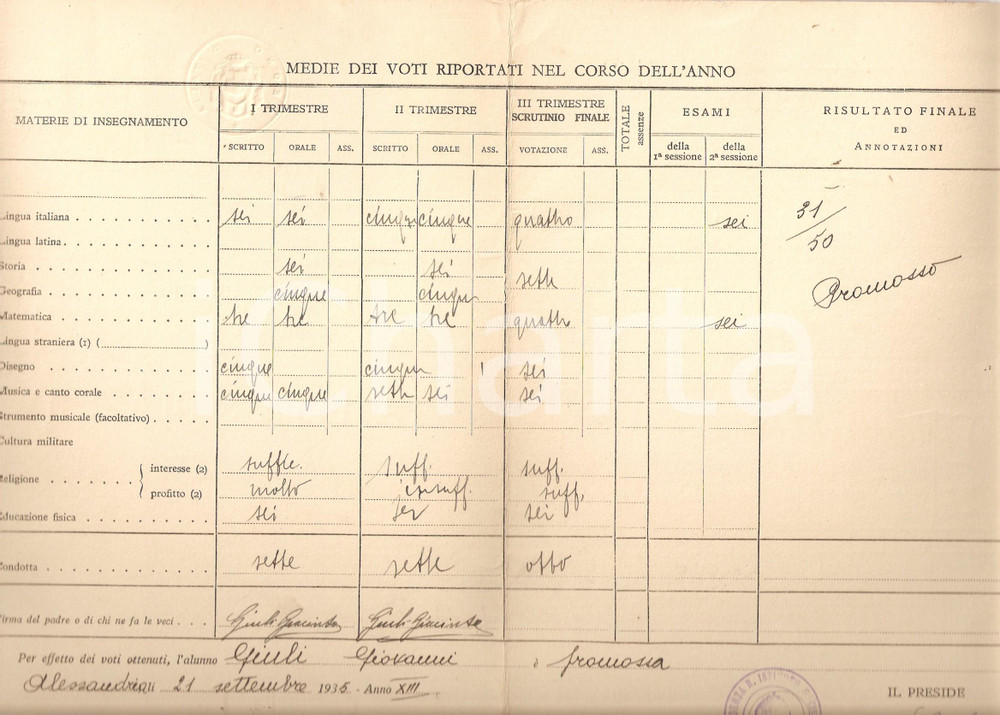 MEDIE DEI VOTI RIPORTATI NEL CORSO DELL'ANNO
MATERIE DI INSEGNAMENTO
I TRIMESTRE
II TRIMESTRE
III TRIMESTRE
SCRUTINIO FINALE
TOTALE
assenze
ESAMI
RISULTATO FINALE
ED
ANNOTAZIONI
SCRITTO ORALE ASS. SCRITTO ORALE ASS. VOTAZIONE ASS. della 1ª sessione della 2ª sessione
Lingua italiana sei sei cinque cinque quattro sei
31/50
Lingua latina
Storia sei sei sette
Geografia cinque cinque
Promosso
Matematica tre tre tre tre quattro sei
Lingua straniera (1) ( )
Disegno cinque cinque sei
Musica e canto corale cinque cinque sette sei sei
Strumento musicale (facoltativo)
Cultura militare
Religione
interesse (2) suff. suff.
profitto (2) molto insuff. suff.
Educazione fisica sei sei sei
Condotta sette sette otto
Firma del padre o di chi ne fa le veci Giuli Giacinto Giuli Giacinto
Per effetto dei voti ottenuti, l'alunno Giuli Giovanni è promossa
Alessandria li 21 settembre 1935 - Anno XIII
IL PRESIDE
ilCharta